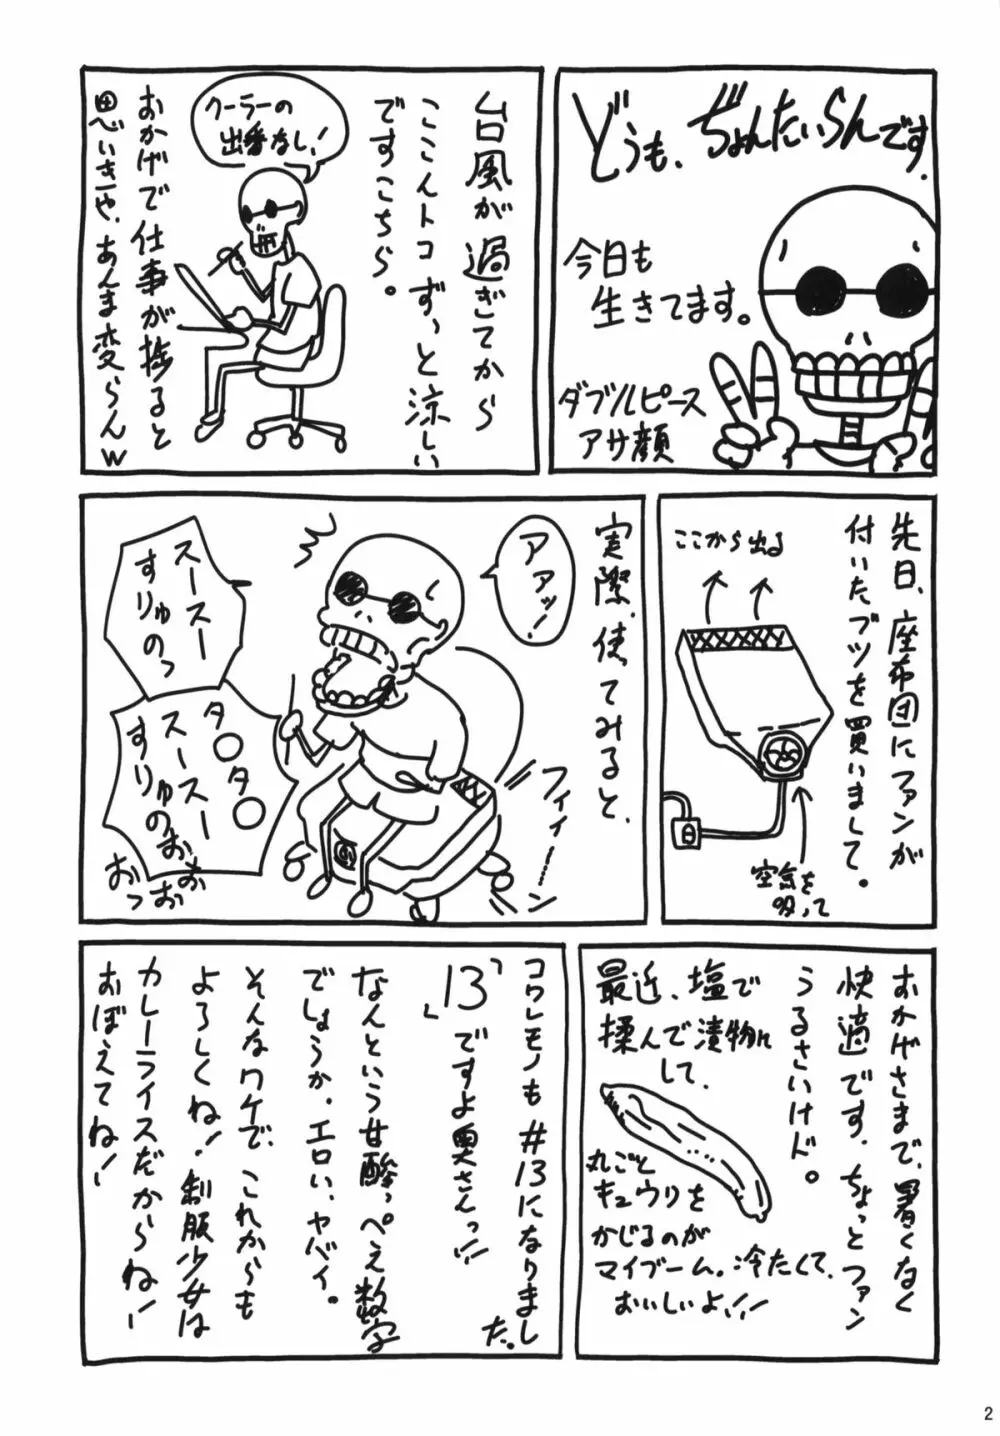 どうも、ぢょんたいらんです。
今日も
生きてます。
ダブルピース
アサ顔
台風が過ぎてから
ここんトコずっと涼しい
ですこちら。
クーラーの
出番なし!
おかげで仕事が捗ると
思いきや、あんま変らんw
先日、座布団にファンが
付いたブツを買いまして。
ここから出る
空気を
吸って
実際、使ってみると、
アアッ!
フィィーーン
スースー
すりゅのっ
タ○タ○
スースー
すりゅのおお
おっおお
おかげさまで、暑くなく
快適です。ちょっとファン
うるさいけド。
最近、塩で
揉んで漬物に
して、
丸ごと
キュウリを
かじるのが
マイブーム。冷たくて、
おいしいよ!!
コワレモノも#13になりました。
「13」ですよ奥さんっ!!
なんという甘酸っぺえ数字
でしょうか。エロい、ヤバイ。
そんなワケで、これからも
よろしくね!制服少女は
カレーライスだからね!
おぼえてね!
2